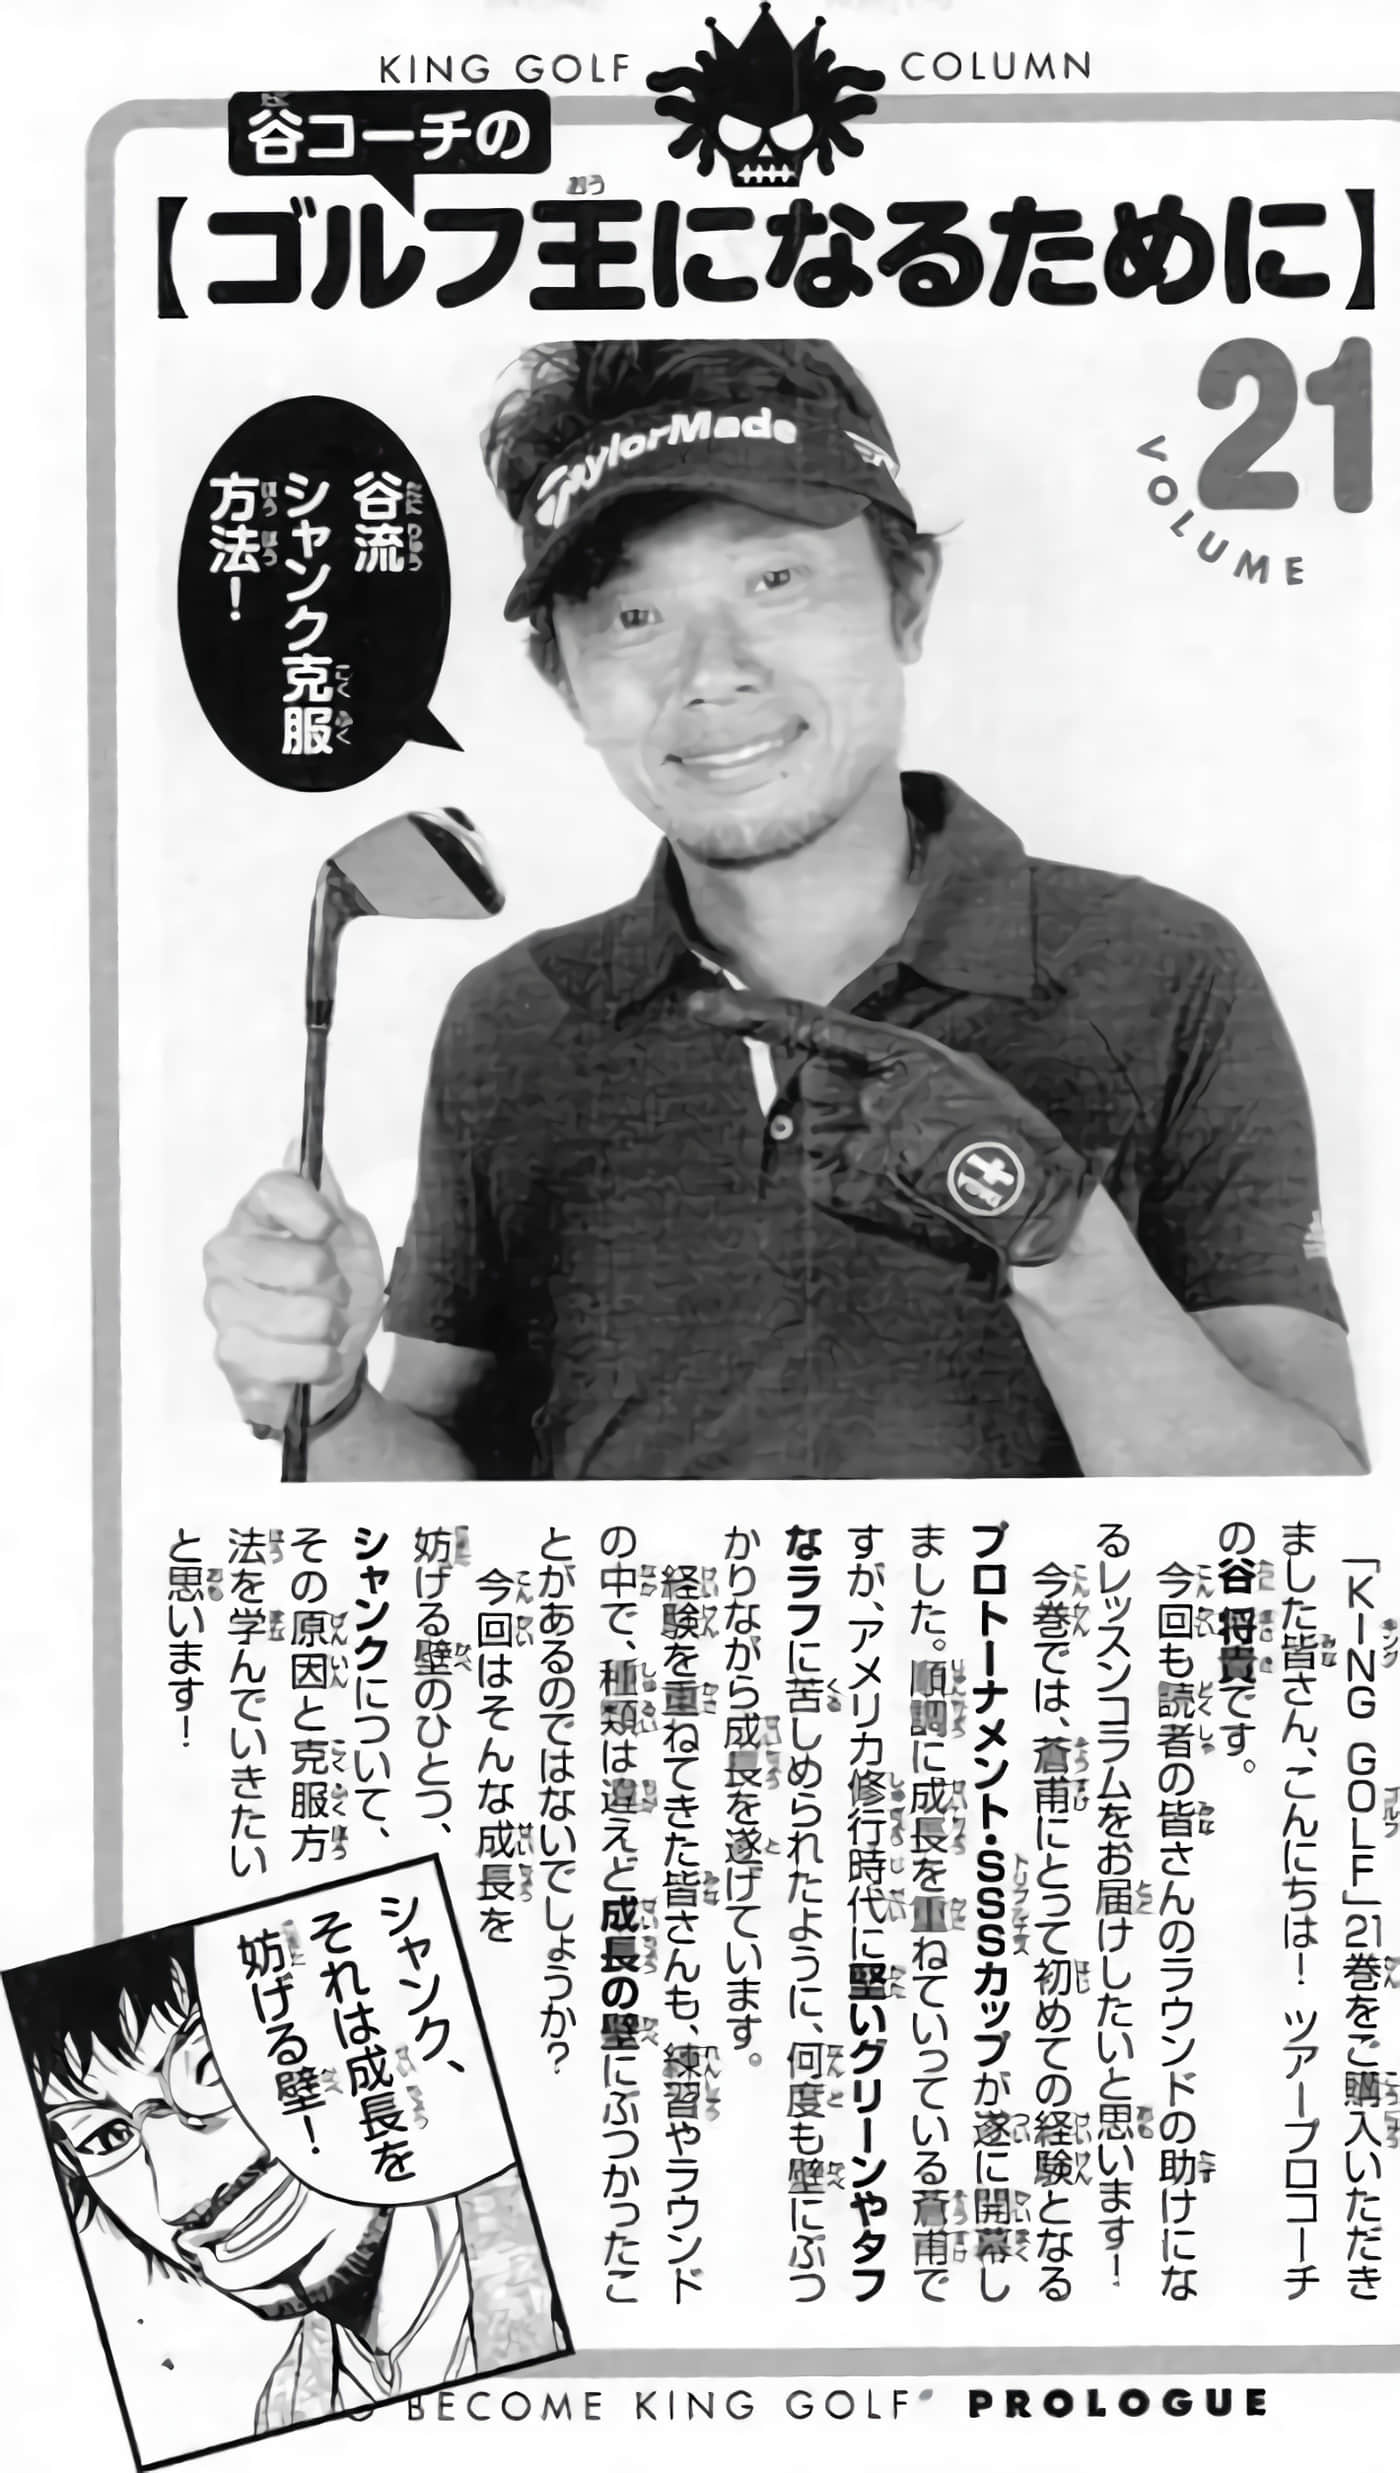 KING GOLF COLUMN
谷コーチの
【ゴルフ王になるために】
21
VOLUME
TaylorMade
谷流
シャンク克服
方法！
「KING GOLF」21巻をご購入いただき
ました皆さん、こんにちは！ ツアープロコーチ
の谷 将貴です。
今回も読者の皆さんのラウンドの助けにな
るレッスンコラムをお届けしたいと思います！
今巻では、蒼甫にとって初めての経験となる
プロトーナメント・SSSカップが遂に開幕し
ました。順調に成長を重ねていっている蒼甫で
すが、アメリカ修行時代に堅いグリーンやタフ
なラフに苦しめられたように、何度も壁にぶつ
かりながら成長を遂げています。
経験を重ねてきた皆さんも、練習やラウンド
の中で、種類は違えど成長の壁にぶつかったこ
とがあるのではないでしょうか？
今回はそんな成長を
妨げる壁のひとつ、
シャンクについて、
その原因と克服方
法を学んでいきたい
と思います！
シャンク、
それは成長を
妨げる壁！
BECOME KING GOLF PROLOGUE